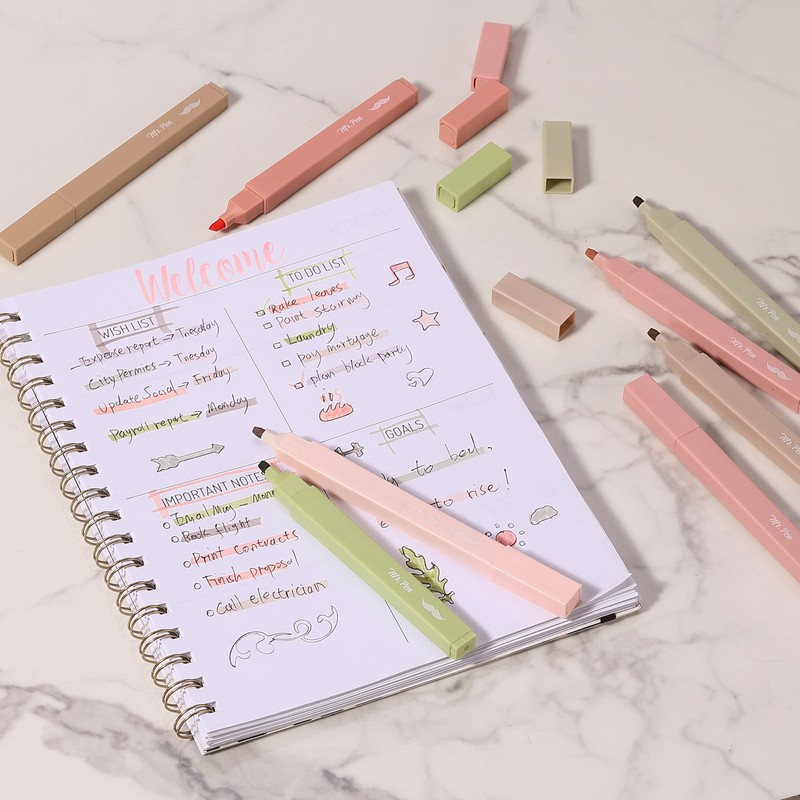 Mr. Pen
Mr. Pen
Welcome
WISH LIST
Expense report → Tuesday
City Permits → Tuesday
Update Social → Friday
Payroll report → Monday
TO DO LIST
Rake leaves
Paint stairway
Laundry
Pay mortgage
plan block party
IMPORTANT NOTES
Email Mug –
Book flight
Print Contracts
Finish proposal
Call electrician
GOALS
to bed,
to rise!
Mr. Pen
Mr. Pen
Mr. Pen
Mr. Pen
Mr. Pen